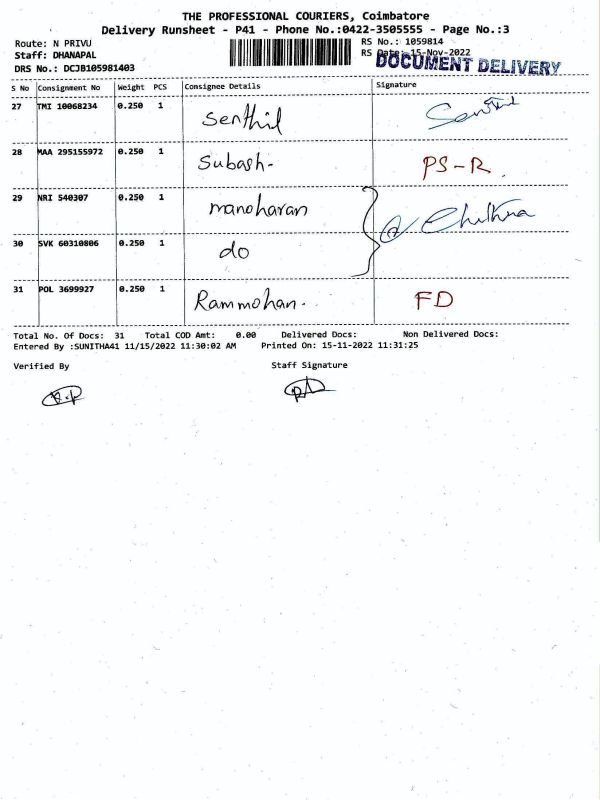 THE PROFESSIONAL COURIERS, Coimbatore
Delivery Runsheet - P41 - Phone No.:0422-3505555 - Page No.:3
Route: N PRIVU RS No.: 1059814
Staff: DHANAPAL RS Date: 15-Nov-2022
DOCUMENT DELIVERY
DRS No.: DCJB105981403
S No Consignment No Weight PCS Consignee Details Signature
27 TMI 10068234 0.250 1 Senthil
28 MAA 295155972 0.250 1 Subash- PS-R.
29 NRI 540307 0.250 1 manoharan
30 SVK 60310806 0.250 1 do
31 POL 3699927 0.250 1 Rammohan.. FD
Total No. Of Docs: 31 Total COD Amt: 0.00 Delivered Docs: Non Delivered Docs:
Entered By :SUNITHA41 11/15/2022 11:30:02 AM Printed On: 15-11-2022 11:31:25
Verified By Staff Signature